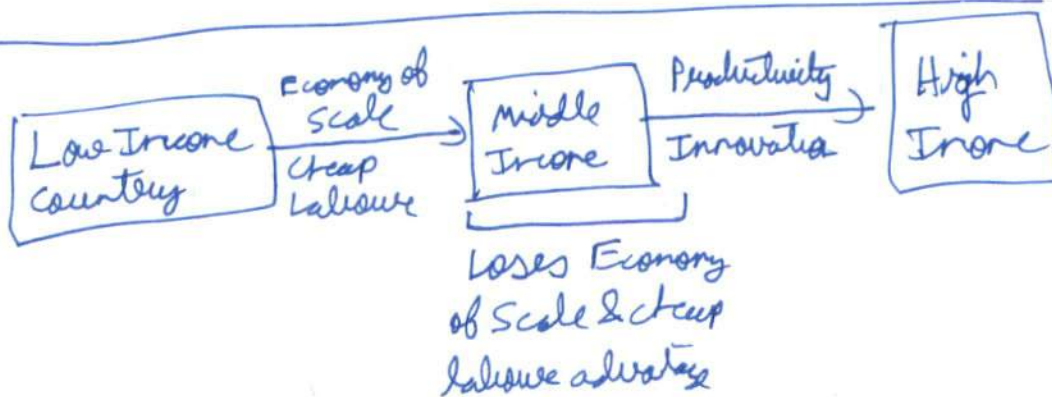 Low Income
Country
Economy of
Scale
Cheap
Labour
Middle
Income
Productivity
Innovation
High
Income
Loses Economy
of Scale & cheap
labour advantage